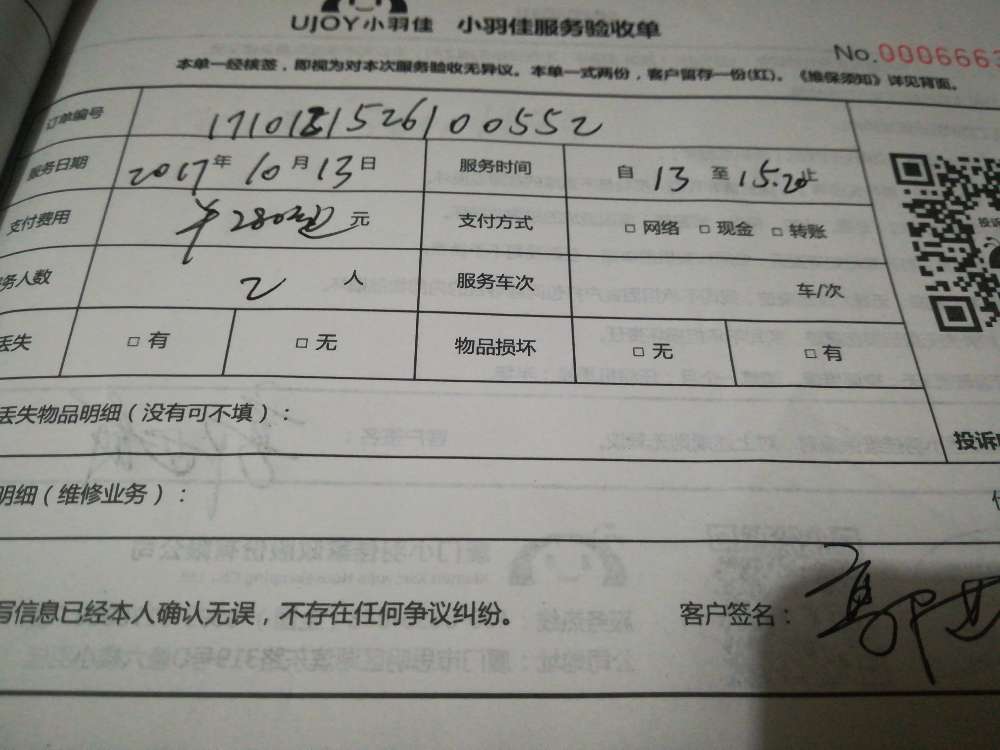 UJOY小羽佳 小羽佳服务验收单
No.0006663
本单一经核签，即视为对本次服务验收无异议。本单一式两份，客户留存一份(红)。《维保须知》详见背面。
订单编号 171018151526100552
服务日期 2017年10月13日 服务时间 自13至15.20止
支付费用 ￥280 元 支付方式 □ 网络 □ 现金 □ 转账
务人数 2 人 服务车次 车/次
丢失 □ 有 □ 无 物品损坏 □ 无 □ 有
丢失物品明细（没有可不填）：
投诉
明细（维修业务）：
写信息已经本人确认无误，不存在任何争议纠纷。 客户签名：